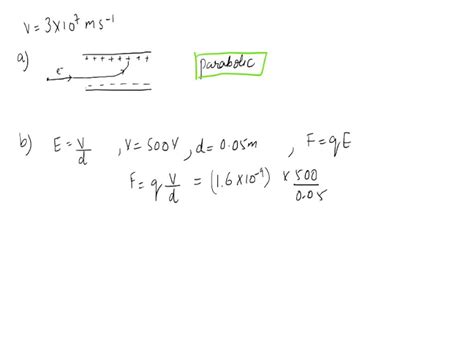 V = 3×10⁷ ms⁻¹
a) e⁻ + + + + + + + +
- - - - - - -
parabolic
b) E = V/d , V = 500V , d = 0.05m , F = qE
F = q V/d = (1.6×10⁻⁹) × 500/0.05